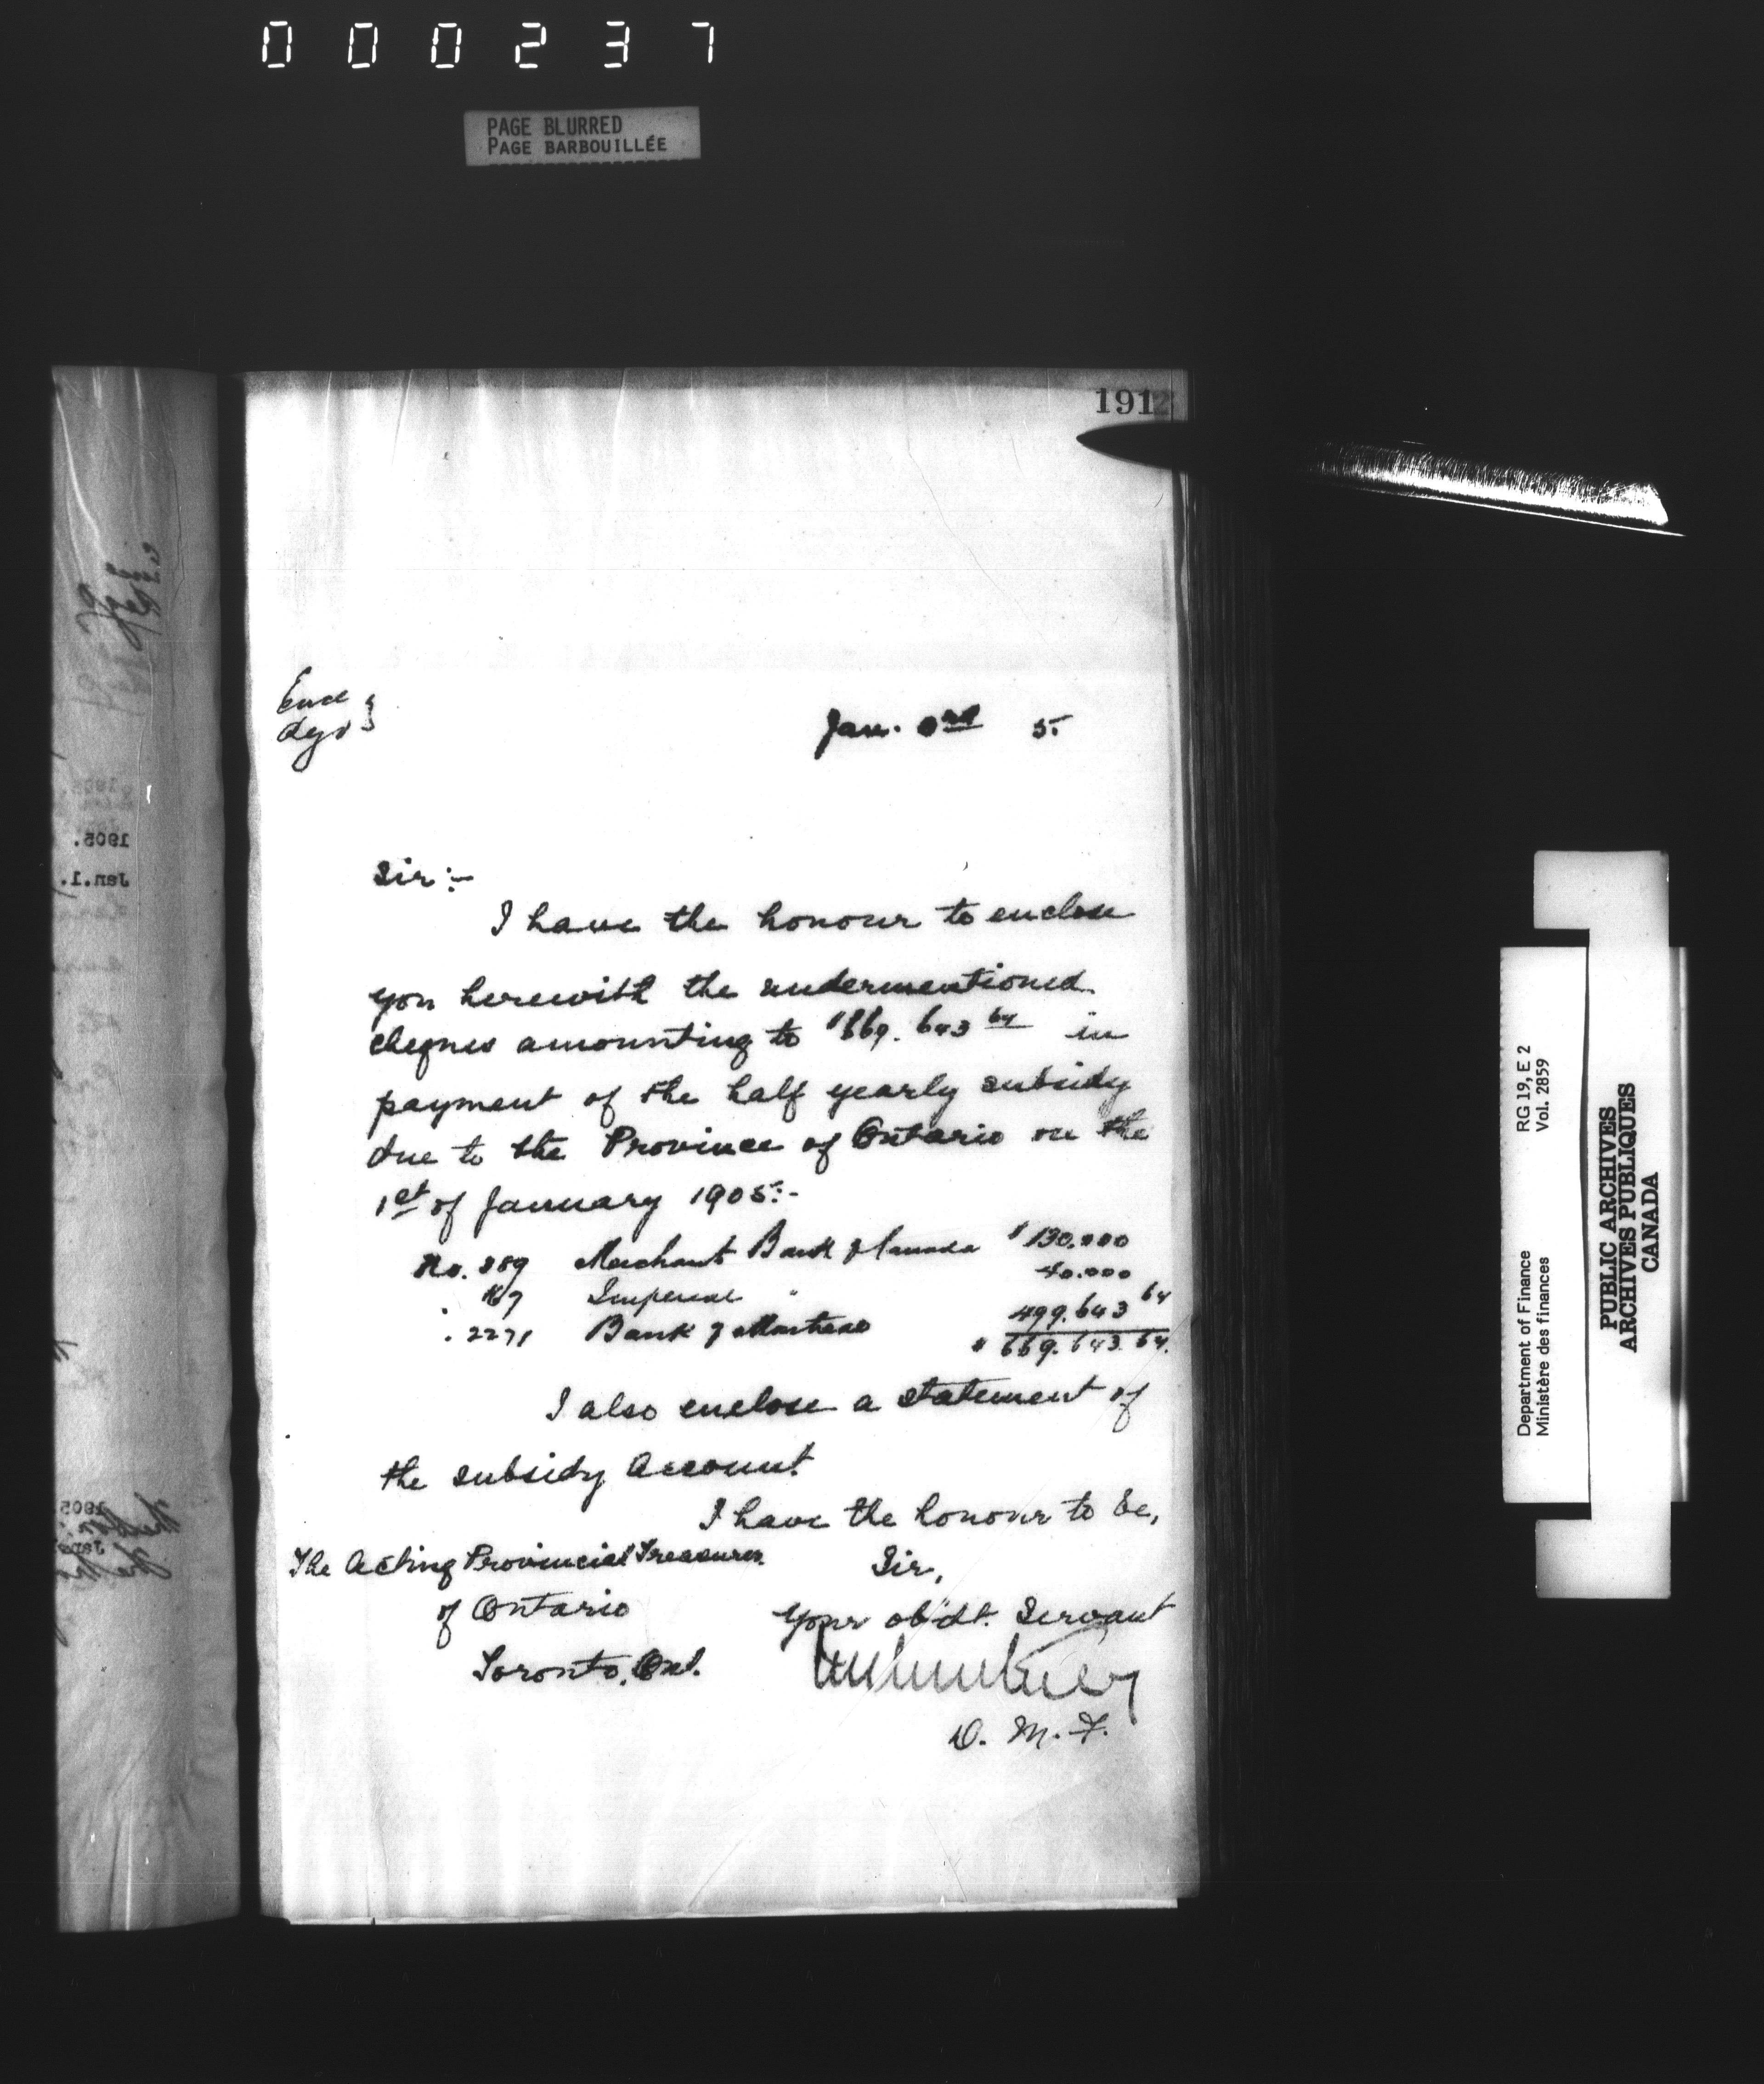 000237
PAGE BLURRED
PAGE BARBOUILLÉE
191
Jan. 3rd 5.
Sir :-
I have the honour to enclose
you herewith the undermentioned
cheques amounting to $669.643 64 in
payment of the half yearly subsidy
due to the Province of Ontario on the
1st of January 1905:-
No. 289 Merchants Bank of Canada $130.000
Imperial " 40.000
. 2271 Bank of Montreal 499.643 64
$ 669.643.64.
I also enclose a statement of
the subsidy account
I have the honour to be,
The Acting Provincial Treasurer Sir,
of Ontario Your ob'dt. Servant
Toronto, Ont.
D. M. F.
1905.
Jan.1.
1905
RG 19, E 2
Vol. 2859
Department of Finance
Ministère des finances
PUBLIC ARCHIVES
ARCHIVES PUBLIQUES
CANADA